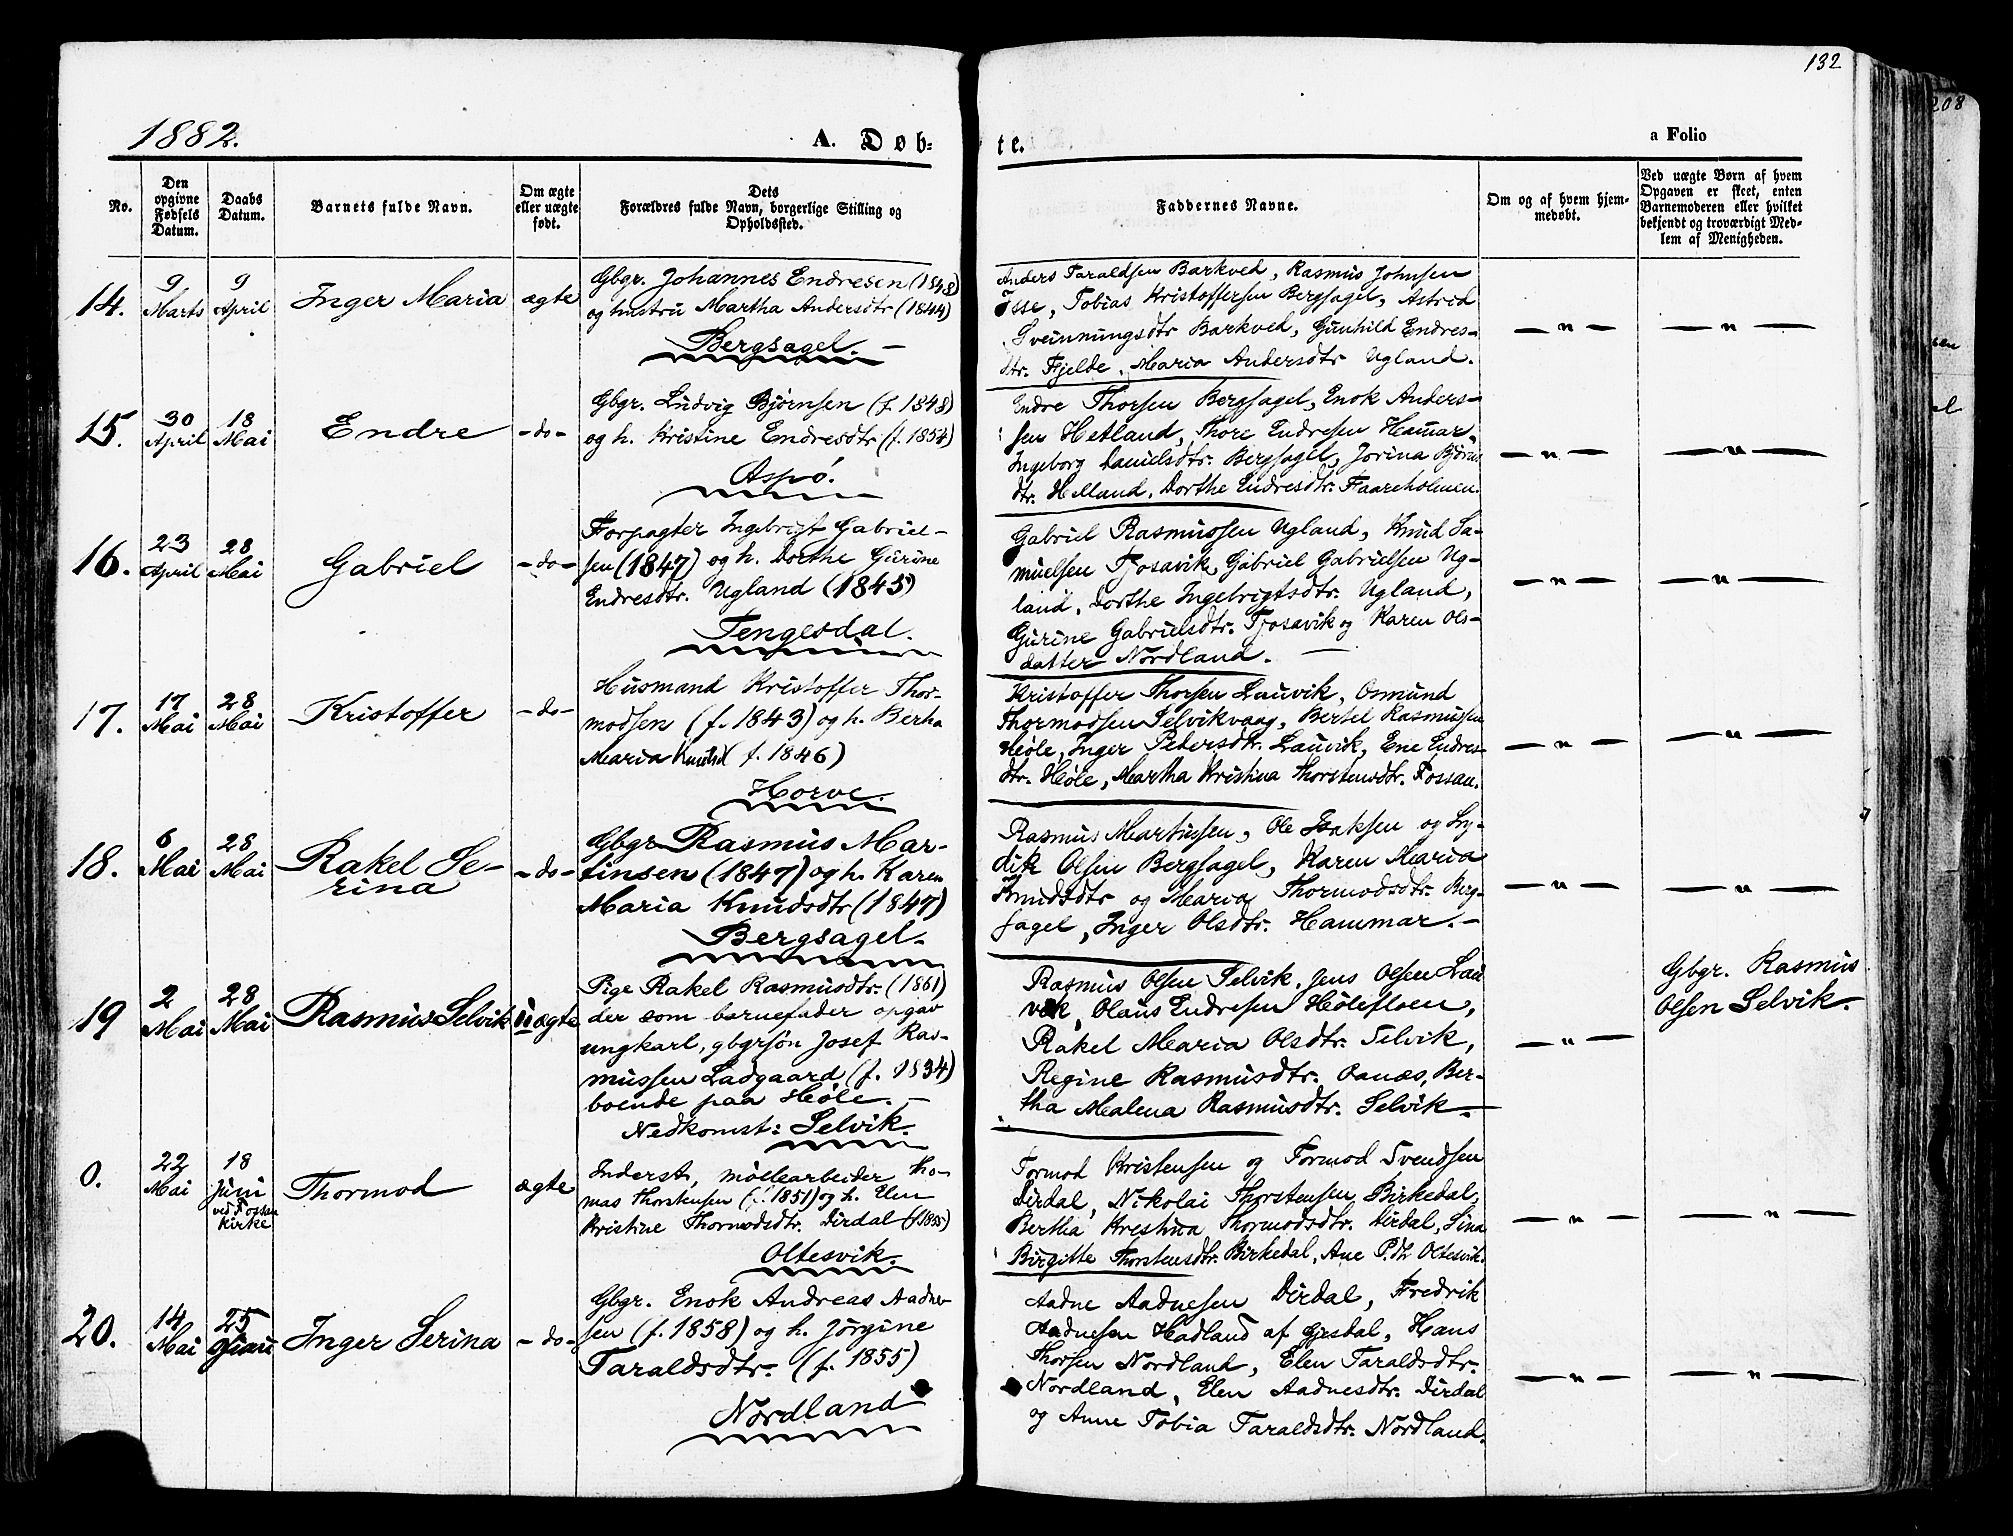 132
208
1882.
A. Døb-
te.
a Folio
No.
Den
opgivne
Fødsels
Datum.
Daabs
Datum.
Barnets fulde Navn.
Om ægte
eller uægte
født.
Dets
Forældres fulde Navn, borgerlige Stilling og
Opholdssted.
Faddernes Navne.
Om og af hvem hjem-
medøbt.
Ved uægte Børn af hvem
Opgaven er skeet, enten
Barnemoderen eller hvilket
bekjendt og troværdigt Med-
lem af Menigheden.
14.
9
Marts
9
April
Inger Maria
ægte
Gbgr. Johannes Endresen (1848)
og hustru Martha Andersdtr (1844)
Bergsagel. –
Anders Taraldsen Barkved, Rasmus Johnsen
Isse, Tobias Kristoffersen Bergsagel, Astrid
Sveinungsdtr Barkved, Gunhild Endres-
dtr. Fjelde, Maria Andersdtr Ugland.
— " —
— " —
15.
30
April
18
Mai
Endre
– do –
Gbgr. Ludvig Bjørnsen (f. 1848)
og h. Kristine Endresdtr (f. 1854)
Aspø.
Endre Thorsen Bergsagel, Enok Anders-
sen Hetland, Thore Endresen Hamar,
Ingeborg Danielsdtr. Bergsagel, Jorina Bjørns
dtr. Helland, Dorthe Endresdtr. Faareholmen.
— " —
— " —
16.
23
April
28
Mai
Gabriel
– do –
Forpagter Ingebrigt Gabriel-
sen (1847) og h. Dorthe Gurine
Endresdtr. Ugland (1845)
Tengesdal.
Gabriel Rasmussen Ugland, Knud Sa-
muelsen Tjosavik, Gabriel Gabrielsen Ug-
land, Dorthe Ingebrigtsdtr. Ugland,
Gurine Gabrielsdtr. Tjosavik og Karen Ols-
datter Nordland. —
— " —
— " —
17.
17
Mai
28
Mai
Kristoffer
– do –
Husmand Kristoffer Thor-
modsen (f. 1843) og h. Berha
Maria Knutsd f. 1846)
Horve.
Kristoffer Thorsen Lauvik, Osmund
Thormodsen Selvikvaag, Bertel Rasmussen
Høle, Inger Pedersdtr. Lauvik, Ene Endres-
dtr. Høle, Martha Kristina Thorstensdtr. Fossan.
— " —
— " —
18.
6
Mai
28
Mai
Rakel Se-
rina
– do –
Gbgr Rasmus Mar-
tinsen (1847) og h. Karen
Maria Knudsdtr (1847)
Bergsagel.
Rasmus Martinsen, Ole Isaksen og
Olsen Bergsagel, Karen Maria
Knudsdtr og Maria Thormodsdtr. Berg-
sagel, Inger Olsdtr. Hammar. –
— " —
— " —
19
2
Mai
28
Mai
Rasmus Selvik
uægte
Pige Rakel Rasmusdtr. (1861)
der som barnefader opgav
ungkarl, gbgrsøn Josef Ras-
mussen Ladgaard (f. 1834)
boende paa Høle. –
Nedkomst: Selvik.
Rasmus Olsen Selvik, Jens Olsen Lau
vik, Olaus Endresen Hølefløen,
Rakel Maria Olsdtr. Selvik,
Regine Rasmusdtr. Oanæs, Ber-
tha Malena Rasmusdtr. Selvik.
— " —
Gbgr. Rasmus
Olsen Selvik.
0.
22
Mai
18
Juni
ved Fossan
Kirke
Thormod
ægte
Inderst, møllearbeider Tho-
mas Thorstensen (f. 1851) og h. Elen
Kristine Thormodsdtr. Dirdal (f 1855)
Oltesvik.
Tormod Kristensen og Tormod Svendsen
Dirdal, Nikolai Thorstensen Birkedal,
Bertha Kristina Thormodsdtr. Dirdal, Sina
Birgitte Thorstensdtr. Birkedal, Ane P.dtr Oltesvik.
— " —
— " —
20.
14
Mai
25
Juni
Inger Serina
– do –
Gbgr. Enok Andreas Aadne-
sen (f. 1858) og h. Jørgine
Taraldsdtr. (f. 1855)
Nordland
Aadne Aadnesen Dirdal, Fredrik
Aadnesen Hadland af Gjesdal, Hans
Thorsen Nordland, Elen Taraldsdtr.
Nordland, Elen Aadnesdtr. Dirdal
og Anne Tobia Taraldsdtr. Nordland.
— " —
— " —